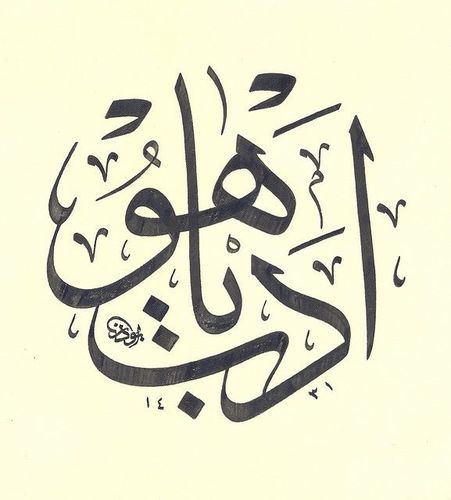 ادب يا هو
١٤٣١